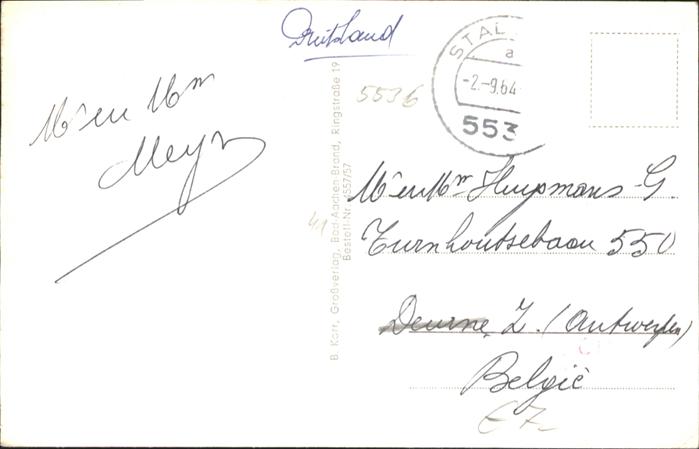 Duitsland
STAL
a
-2.-9.64
553
5536
Mr en Mm
Meyn
41
B. Korr, Großverlag, Bad Aachen-Brand, Ringstraße 19
Bestell-Nr. 4557/57
Mr en Mm Huypmans G.
Turnhoutsebaan 550
Deurne Z. (Antwerpen)
België
€7-